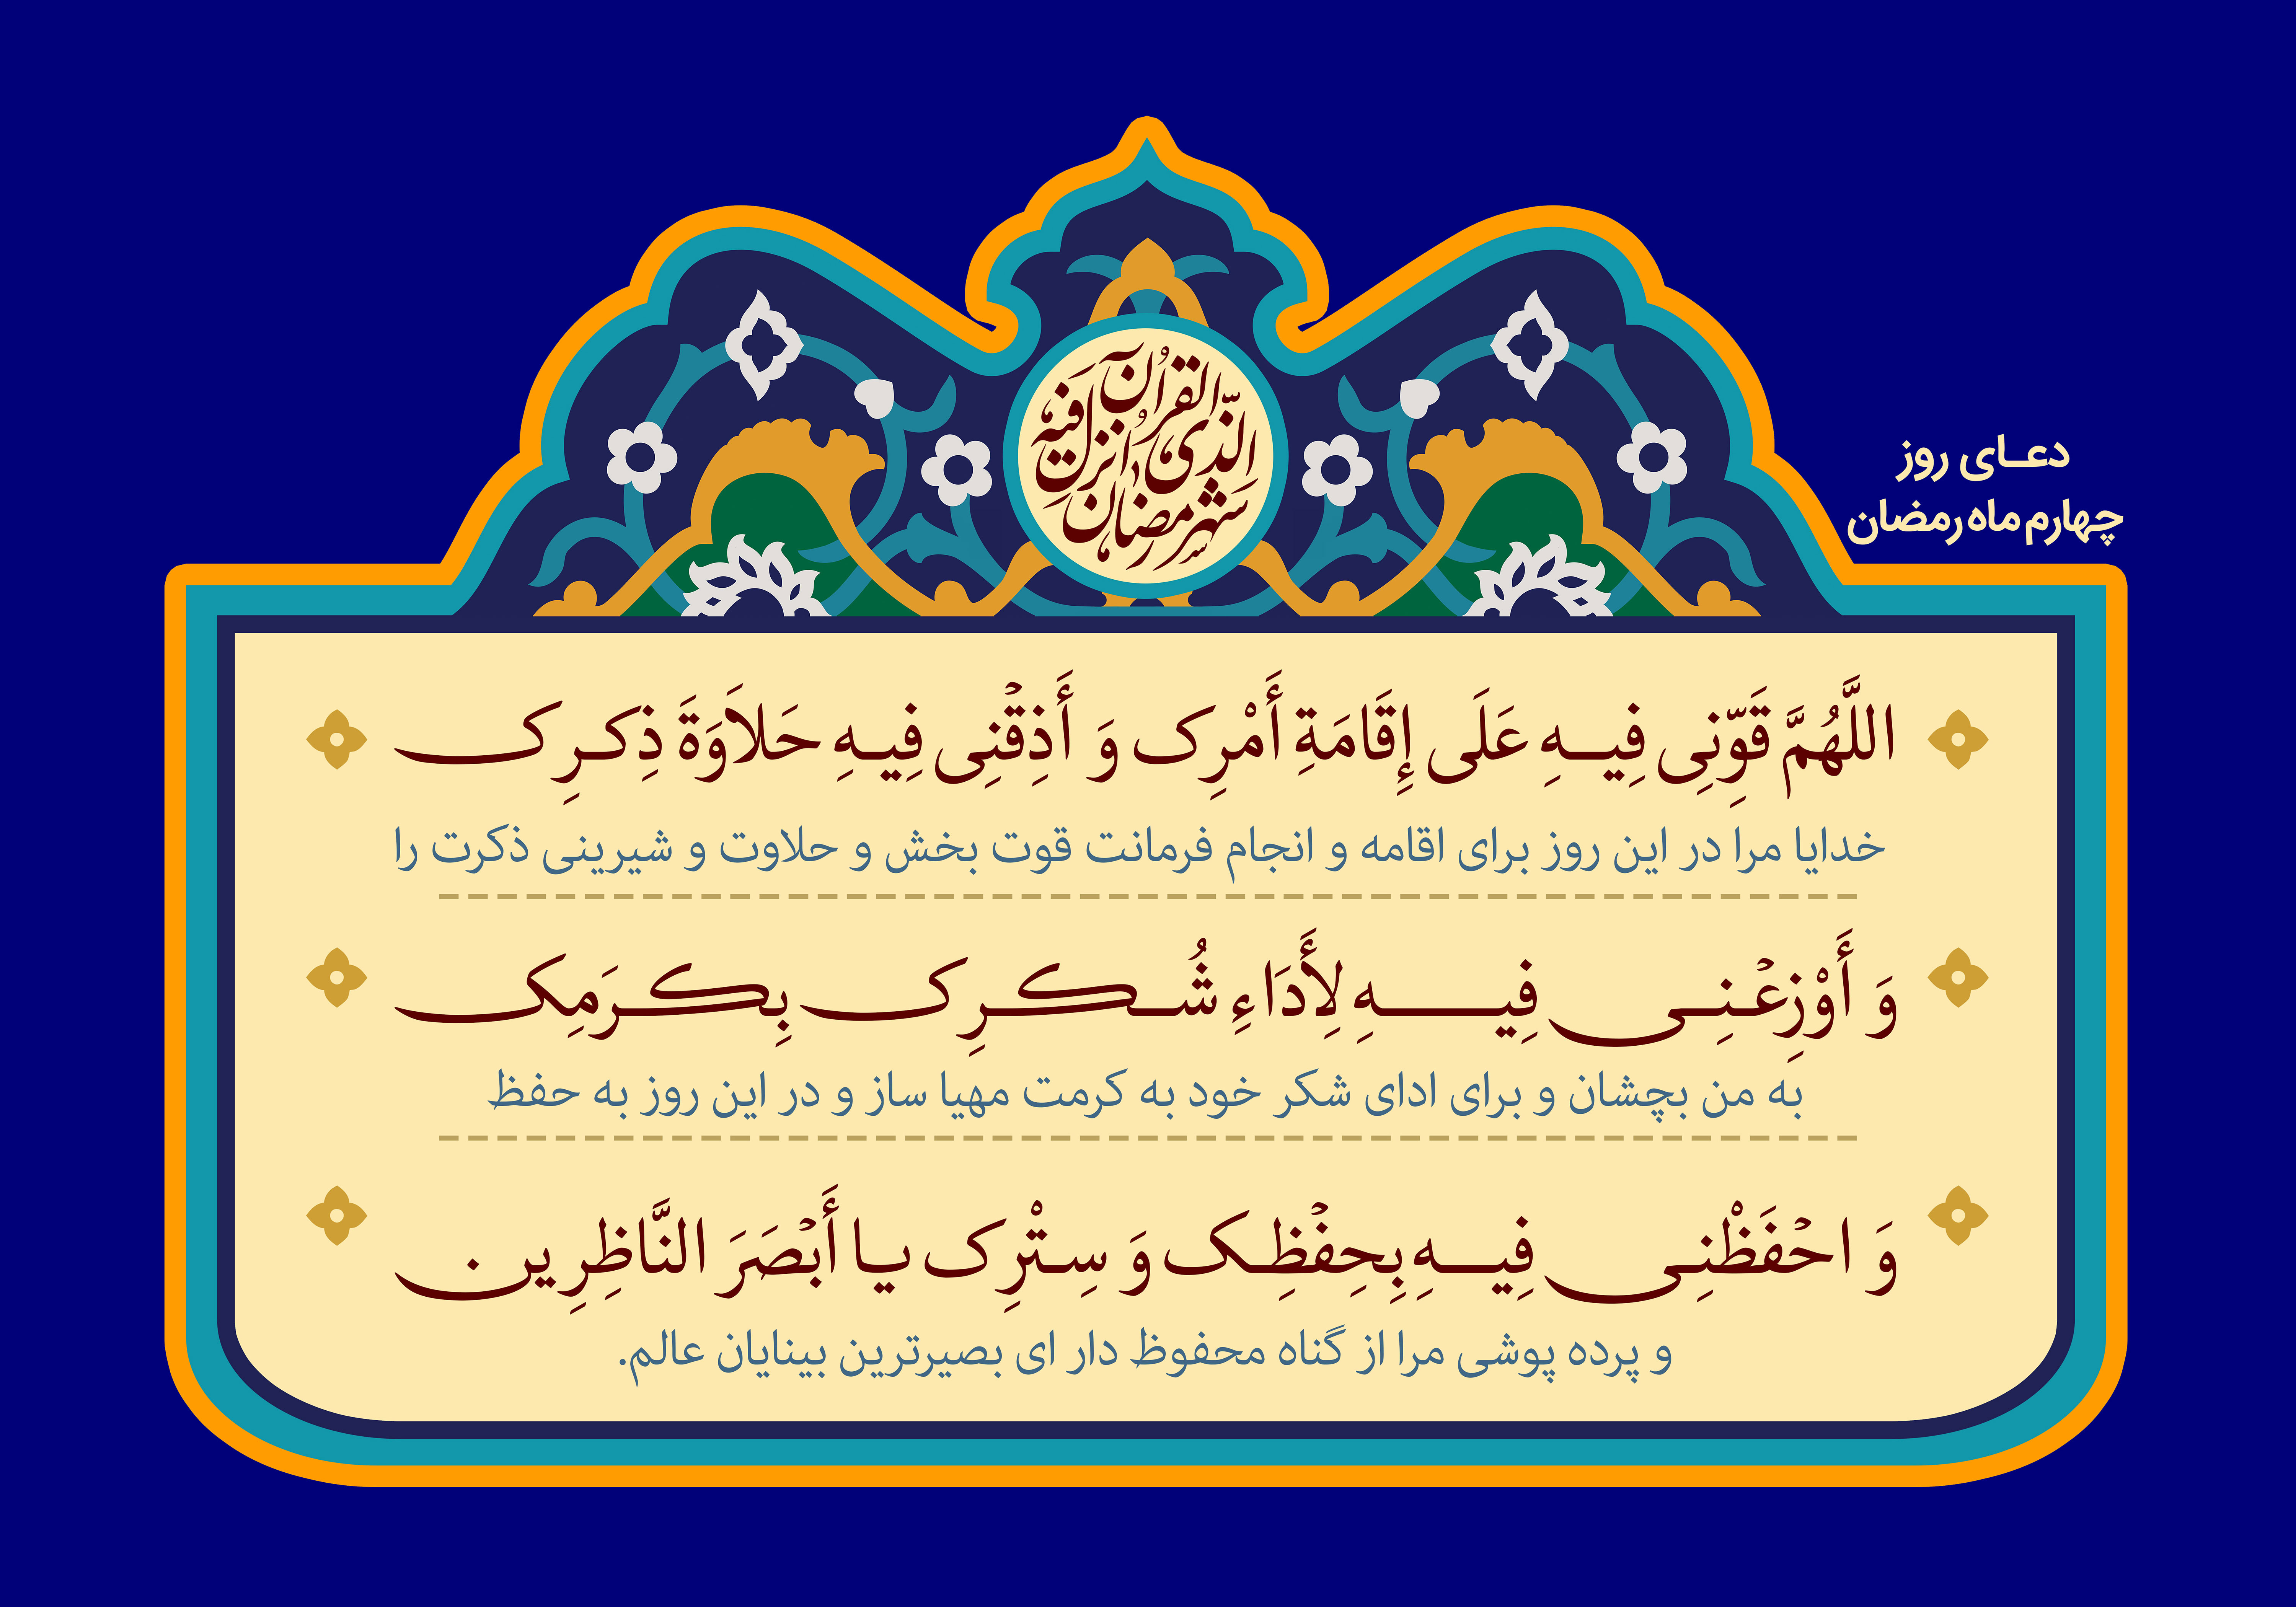 شهر رمضان
الذی انزل فیه
القرآن
دعای روز
چهارم ماه رمضان
اللَّهُمَّ قَوِّنِی فِیهِ عَلَی إِقَامَةِ أَمْرِک وَ أَذِقْنِی فِیهِ حَلاَوَةَ ذِکرِک
خدایا مرا در این روز برای اقامه و انجام فرمانت قوت بخش و حلاوت و شیرینی ذکرت را
وَ أَوْزِعْنِی فِیهِ لِأَدَاءِ شُکرِک بِکرَمِک
به من بچشان و برای ادای شکر خود به کرمت مهیا ساز و در این روز به حفظ
وَ احْفَظْنِی فِیهِ بِحِفْظِک وَ سِتْرِک یا أَبْصَرَ النَّاظِرِین
و پرده پوشی مرا از گناه محفوظ دار ای بصیرترین بینایان عالم.